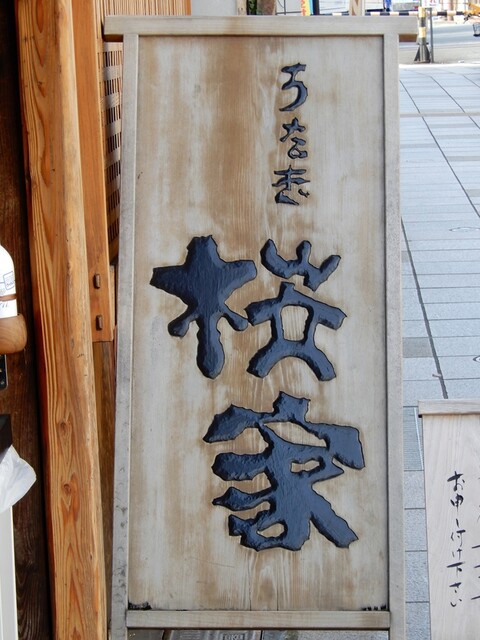 うなぎ
桜家
お申し付け下さい